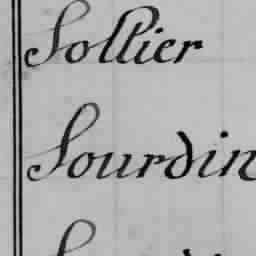 Sollier
Sourdin